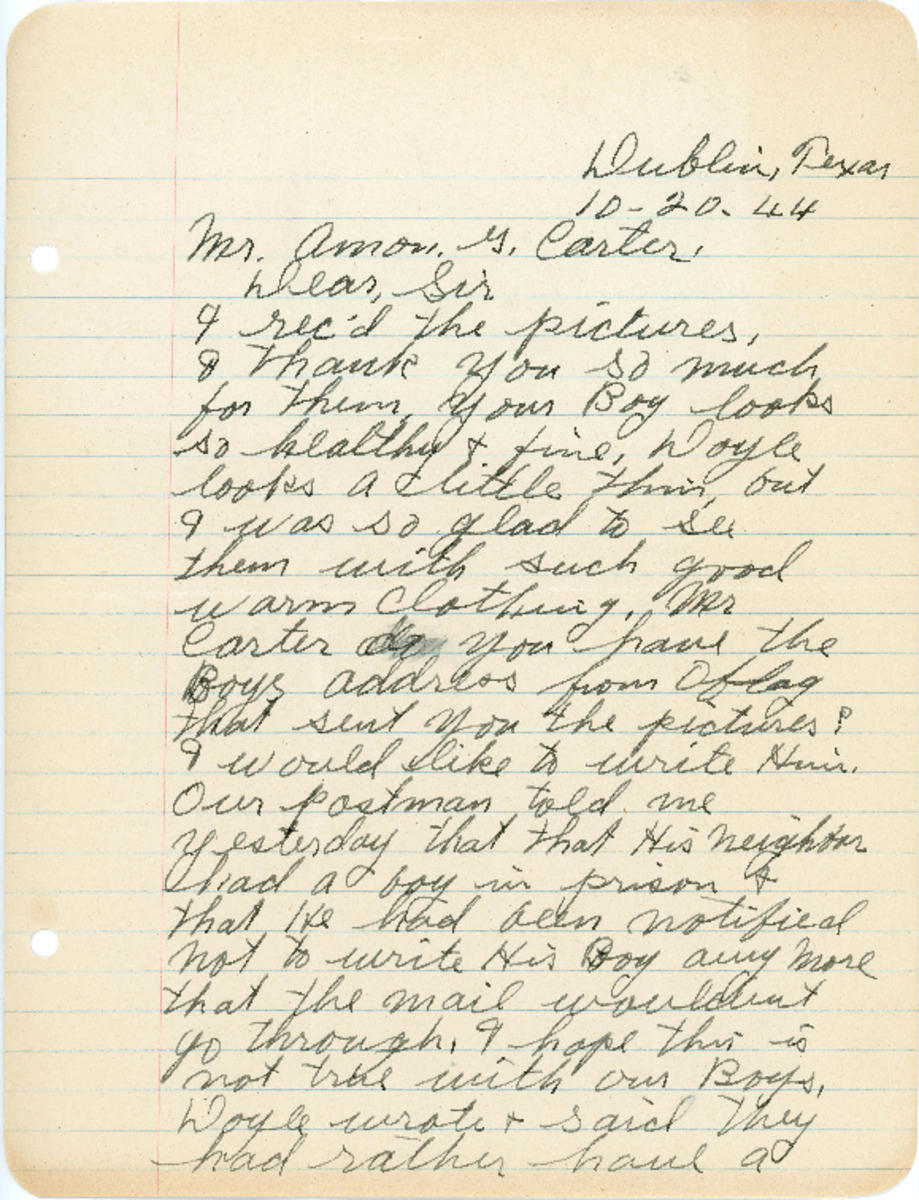 Dublin, Texas
10-20-44
Mr. Amon. G. Carter,
Dear, Sir
I rec'd the pictures,
& thank you so much
for them, your Boy looks
so healthy & fine, Doyle
looks a little thin, but
I was so glad to see
them with such good
warm clothing, Mr
Carter do you have the
Boys address from Oflag
that sent you the pictures?
I would like to write Him.
Our postman told me
yesterday that that His neighbor
had a boy in prison &
that He had been notified
not to write His Boy any more
that the mail wouldn't
go through, I hope this is
not true with our Boys,
Doyle wrote & said they
had rather have a